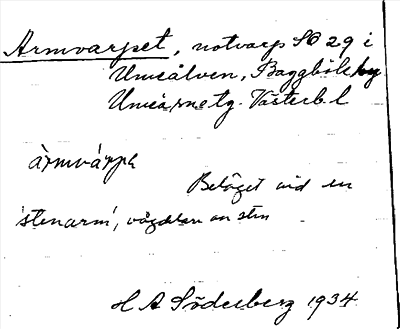 Armvarpet, notvarp SO 29 i
Umeälven, Baggböle by
Umeå Västerb. l
àrmvárpe
Beläget vid en
'stenarm', av sten
H A Söderberg 1934